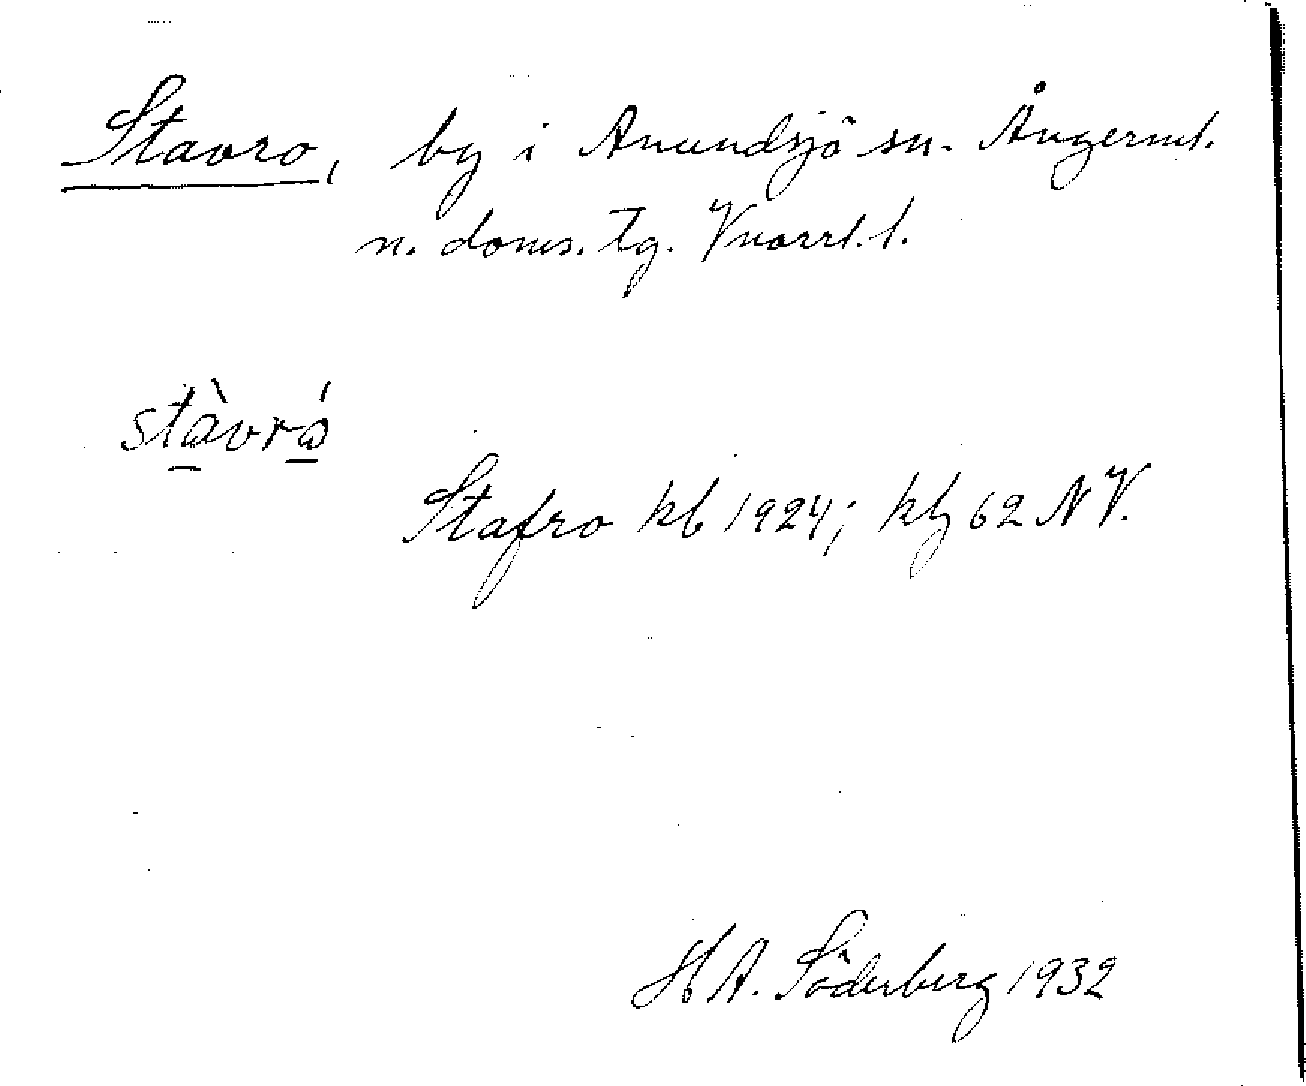 Stavro, by i Anundsjö sn. Ångerml.
n. doms. tg. Vnorrl. l.
stàvró
Stafro kb 1924; kbl 62 NV.
H A. Söderberg 1932